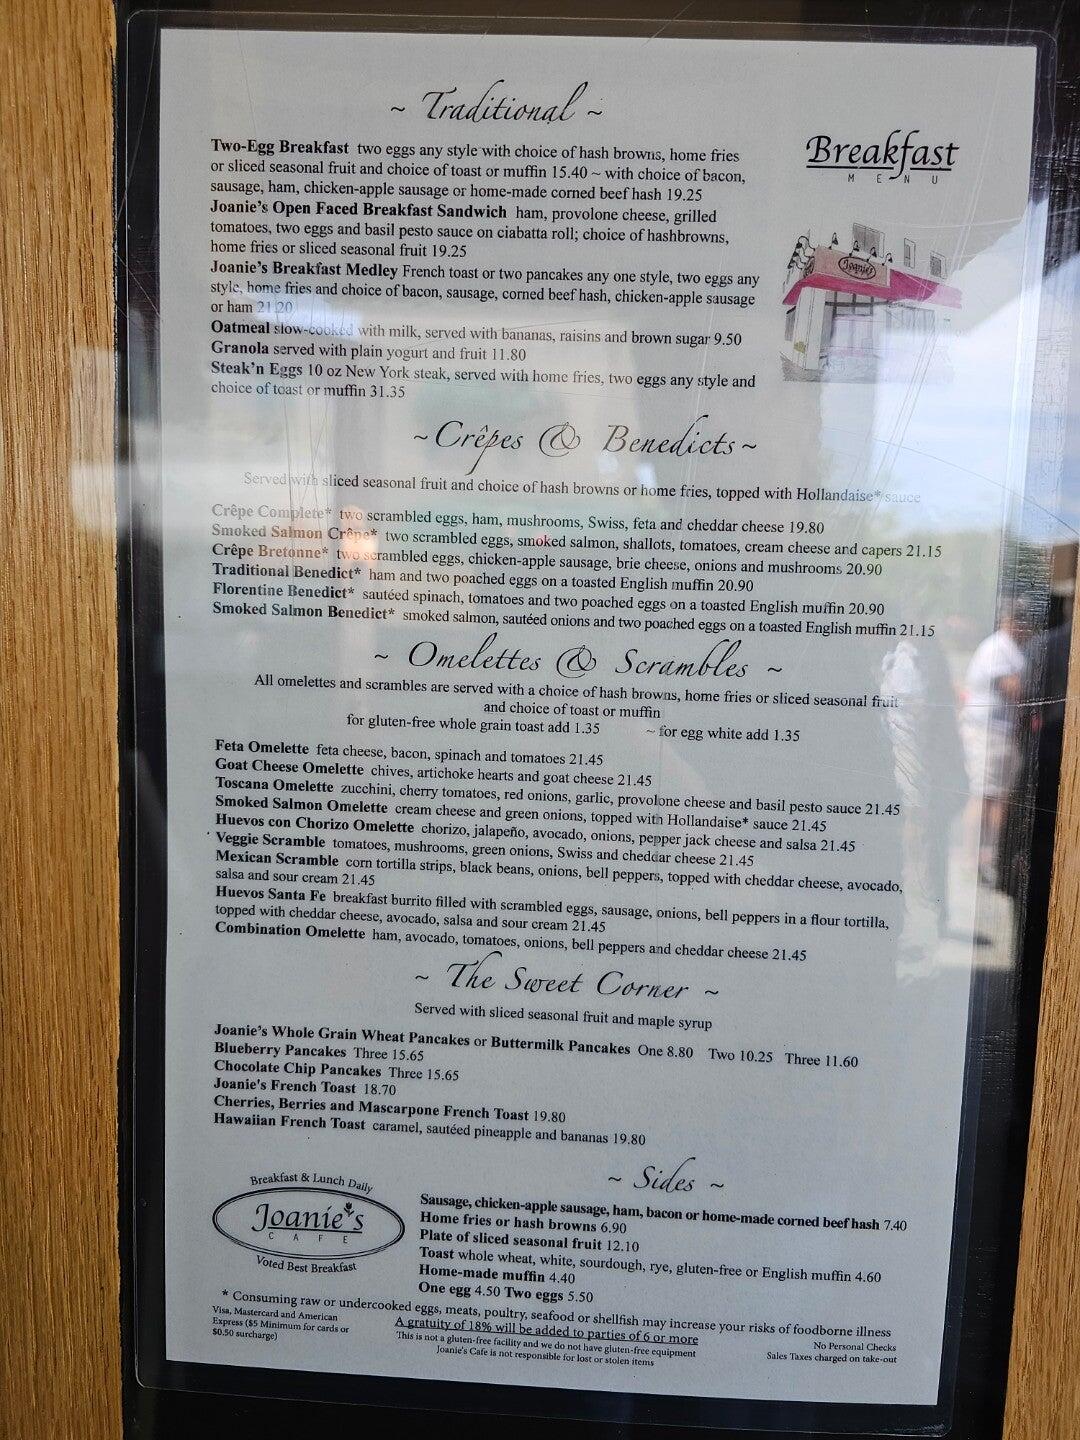 ~ Traditional ~
Breakfast
MENU
Two-Egg Breakfast two eggs any style with choice of hash browns, home fries
or sliced seasonal fruit and choice of toast or muffin 15.40 ~ with choice of bacon,
sausage, ham, chicken-apple sausage or home-made corned beef hash 19.25
Joanie's Open Faced Breakfast Sandwich ham, provolone cheese, grilled
tomatoes, two eggs and basil pesto sauce on ciabatta roll; choice of hashbrowns,
home fries or sliced seasonal fruit 19.25
Joanie's Breakfast Medley French toast or two pancakes any one style, two eggs any
style, home fries and choice of bacon, sausage, corned beef hash, chicken-apple sausage
or ham 21.20
Oatmeal slow-cooked with milk, served with bananas, raisins and brown sugar 9.50
Granola served with plain yogurt and fruit 11.80
Steak'n Eggs 10 oz New York steak, served with home fries, two eggs any style and
choice of toast or muffin 31.35
Joanie's
~ Crêpes & Benedicts ~
Served with sliced seasonal fruit and choice of hash browns or home fries, topped with Hollandaise* sauce
Crêpe Complete* two scrambled eggs, ham, mushrooms, Swiss, feta and cheddar cheese 19.80
Smoked Salmon Crêpe* two scrambled eggs, smoked salmon, shallots, tomatoes, cream cheese and capers 21.15
Crêpe Bretonne* two scrambled eggs, chicken-apple sausage, brie cheese, onions and mushrooms 20.90
Traditional Benedict* ham and two poached eggs on a toasted English muffin 20.90
Florentine Benedict* sautéed spinach, tomatoes and two poached eggs on a toasted English muffin 20.90
Smoked Salmon Benedict* smoked salmon, sautéed onions and two poached eggs on a toasted English muffin 21.15
~ Omelettes & Scrambles ~
All omelettes and scrambles are served with a choice of hash browns, home fries or sliced seasonal fruit
and choice of toast or muffin
for gluten-free whole grain toast add 1.35 ~ for egg white add 1.35
Feta Omelette feta cheese, bacon, spinach and tomatoes 21.45
Goat Cheese Omelette chives, artichoke hearts and goat cheese 21.45
Toscana Omelette zucchini, cherry tomatoes, red onions, garlic, provolone cheese and basil pesto sauce 21.45
Smoked Salmon Omelette cream cheese and green onions, topped with Hollandaise* sauce 21.45
Huevos con Chorizo Omelette chorizo, jalapeño, avocado, onions, pepper jack cheese and salsa 21.45
Veggie Scramble tomatoes, mushrooms, green onions, Swiss and cheddar cheese 21.45
Mexican Scramble corn tortilla strips, black beans, onions, bell peppers, topped with cheddar cheese, avocado,
salsa and sour cream 21.45
Huevos Santa Fe breakfast burrito filled with scrambled eggs, sausage, onions, bell peppers in a flour tortilla,
topped with cheddar cheese, avocado, salsa and sour cream 21.45
Combination Omelette ham, avocado, tomatoes, onions, bell peppers and cheddar cheese 21.45
~ The Sweet Corner ~
Served with sliced seasonal fruit and maple syrup
Joanie's Whole Grain Wheat Pancakes or Buttermilk Pancakes One 8.80 Two 10.25 Three 11.60
Blueberry Pancakes Three 15.65
Chocolate Chip Pancakes Three 15.65
Joanie's French Toast 18.70
Cherries, Berries and Mascarpone French Toast 19.80
Hawaiian French Toast caramel, sautéed pineapple and bananas 19.80
~ Sides ~
Sausage, chicken-apple sausage, ham, bacon or home-made corned beef hash 7.40
Home fries or hash browns 6.90
Plate of sliced seasonal fruit 12.10
Toast whole wheat, white, sourdough, rye, gluten-free or English muffin 4.60
Home-made muffin 4.40
One egg 4.50 Two eggs 5.50
Breakfast & Lunch Daily
Joanie's
CAFE
Voted Best Breakfast
* Consuming raw or undercooked eggs, meats, poultry, seafood or shellfish may increase your risks of foodborne illness
Visa, Mastercard and American
Express ($5 Minimum for cards or
$0.50 surcharge)
A gratuity of 18% will be added to parties of 6 or more
This is not a gluten-free facility and we do not have gluten-free equipment
Joanie's Cafe is not responsible for lost or stolen items
No Personal Checks
Sales Taxes charged on take-out